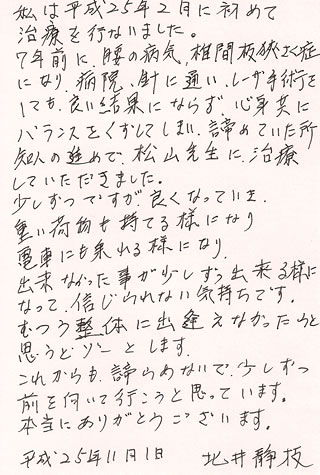 私は平成25年2月に初めて
治療を行ないました。
7年前に、腰の病気、椎間板狭さく症
になり、病院、針に通い、レーザ手術を
しても、良い結果にならず、心身共に
バランスをくずしてしまい、諦めていた所
知人の進めで、松山先生に治療
していただきました。
少しずつですが、良くなっていき、
重い荷物も持てる様になり
電車にも乗れる様になり、
出来なかった事が少しずつ出来る様に
なって、信じられない気持ちです。
もう整体に出逢えなかったらと
思うとゾーとします。
これからも、諦らめないで、少しずつ
前を向いて行こうと思っています。
本当にありがとうございます。
平成25年11月1日 北井静枝